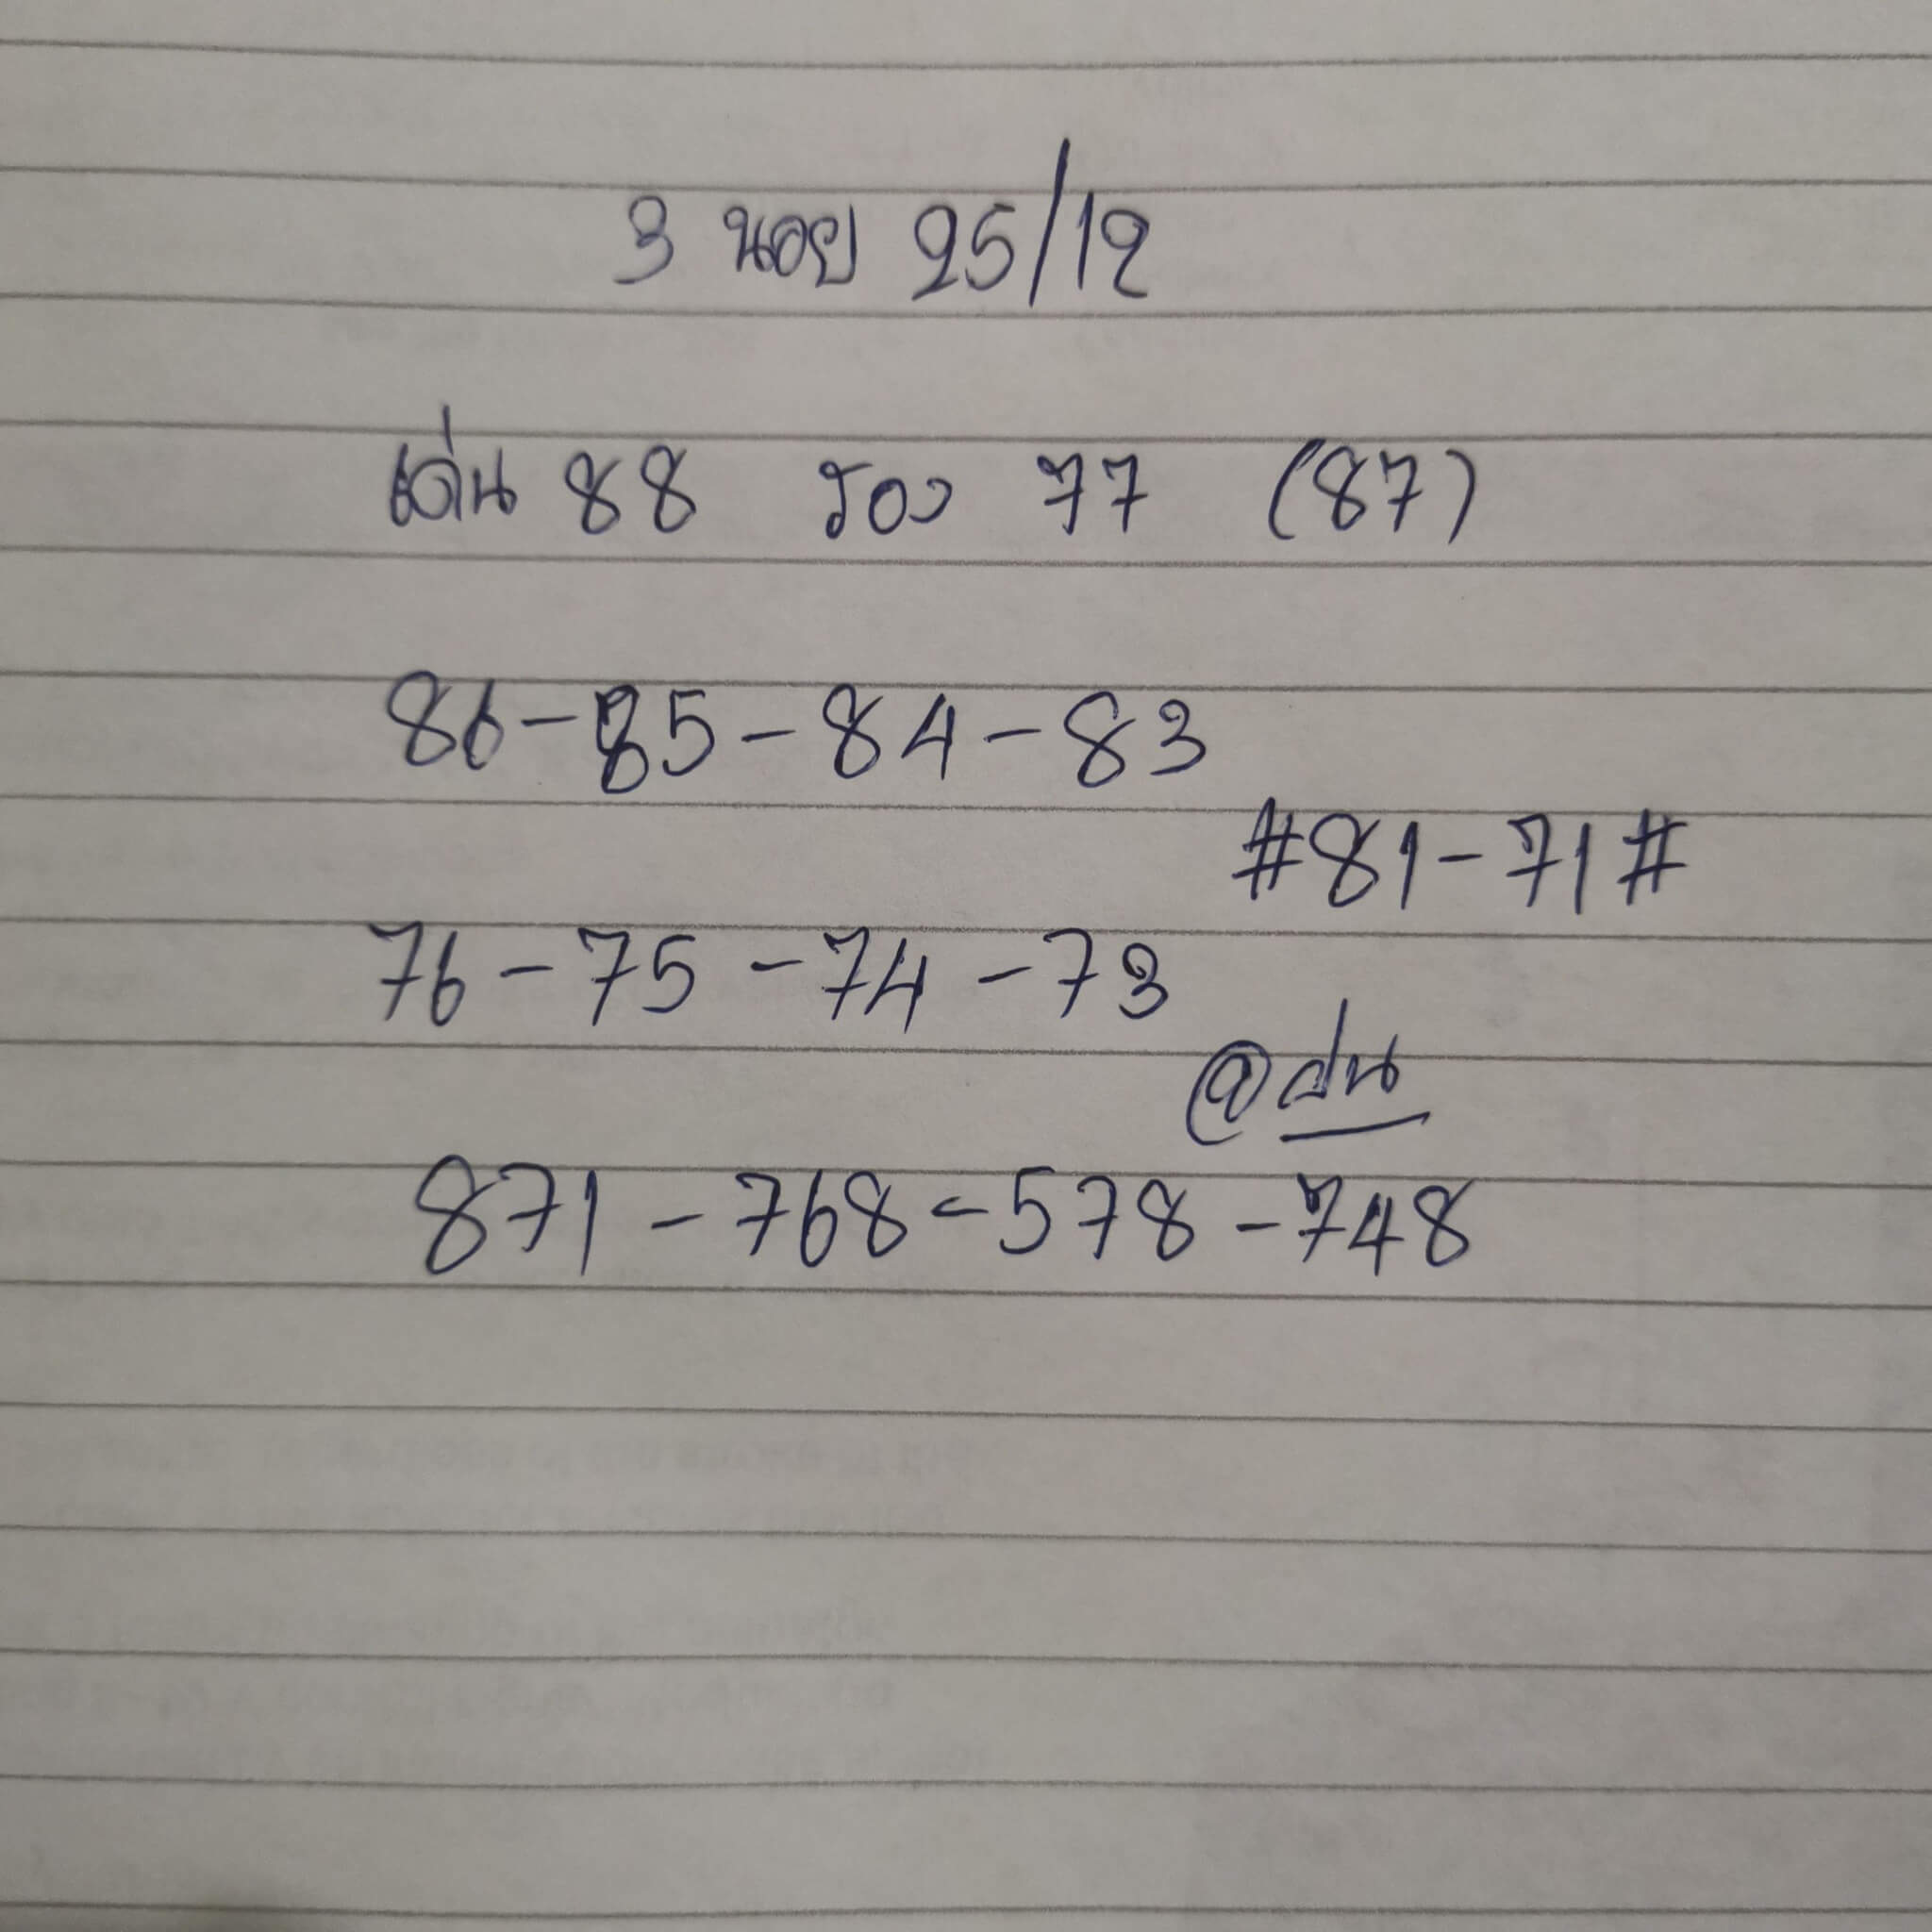 3 นอย 25/12
เด่น 88 รอง 77 (87)
86-85-84-83
#81-71#
76-75-74-73
@ฝน
871-768-578-748